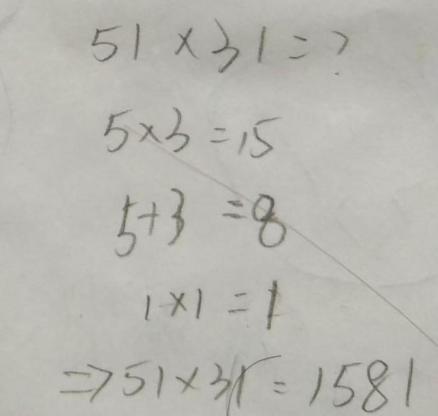 51 × 31 = ?
5 × 3 = 15
5 + 3 = 8
1 × 1 = 1
⇒ 51 × 31 = 1581